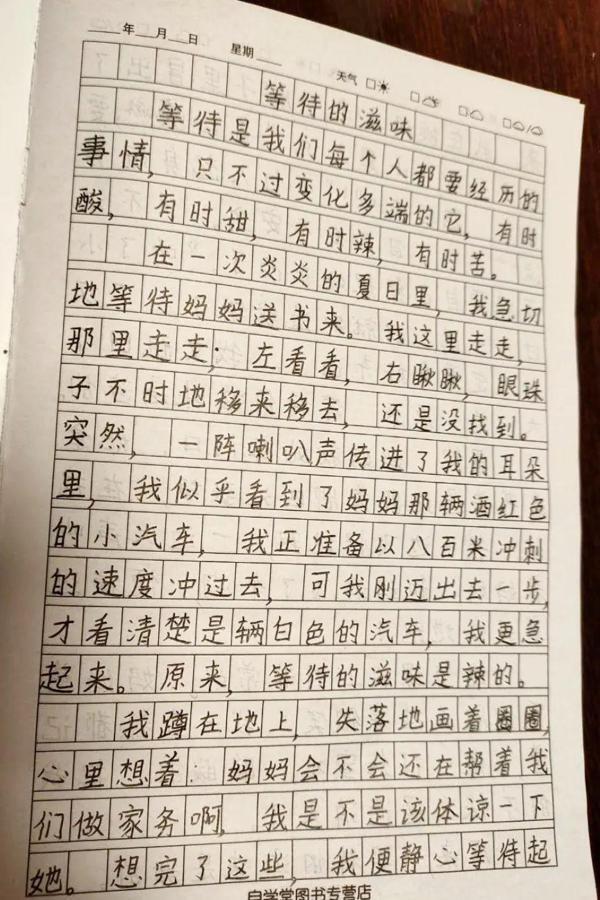 年 月 日 星期 天气
等待的滋味
等待是我们每个人都要经历的
事情，只不过变化多端的它，有时
酸，有时甜，有时辣，有时苦。
在一次炎炎的夏日里，我急切
地等待妈妈送书来。我这里走走，
那里走走；左看看，右瞅瞅，眼珠
子不时地移来移去，还是没找到。
突然，一阵喇叭声传进了我的耳朵
里，我似乎看到了妈妈那辆酒红色
的小汽车，我正准备以八百米冲刺
的速度冲过去，可我刚迈出去一步，
才看清楚是辆白色的汽车，我更急
起来。原来，等待的滋味是辣的。
我蹲在地上，失落地画着圈圈，
心里想着：妈妈会不会还在帮着我
们做家务啊，我是不是该体谅一下
她。想完了这些，我便静心等待起
自学堂图书专营店